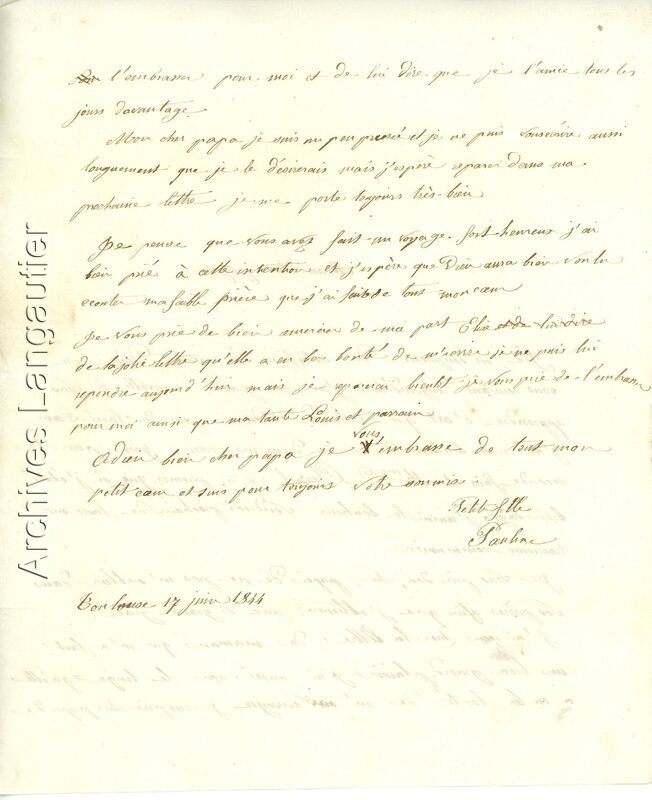 l'embrasser pour moi et de lui dire que je l'aime tous les
jours davantage
Mon cher papa je suis un peu pressé et je ne puis vous écrire aussi
longuement que je le désirerais mais j'espère reparer dans ma
prochaine lettre je me porte toujours très-bien
Je pense que vous avez fait un voyage fort heureux j'ai
bien prié à cette intention et j'espère que Dieu aura bien voulu
ecouter ma faible prière que j'ai faite de tout mon cœur
Je vous prie de bien remercier de ma part et de lui dire
de la jolie lettre qu'elle a eu la bonté de m'écrire je ne puis lui
rependre aujourd'hui mais je bientot je vous prie de l'embrasser
pour moi ainsi que ma tante Louis et parrain
Adieu bien cher papa je vous embrasse de tout mon
petit cœur et suis pour toujours votre soumise
Petite fille
Pauline
Toulouse 17 juin 1844
Archives Langautier